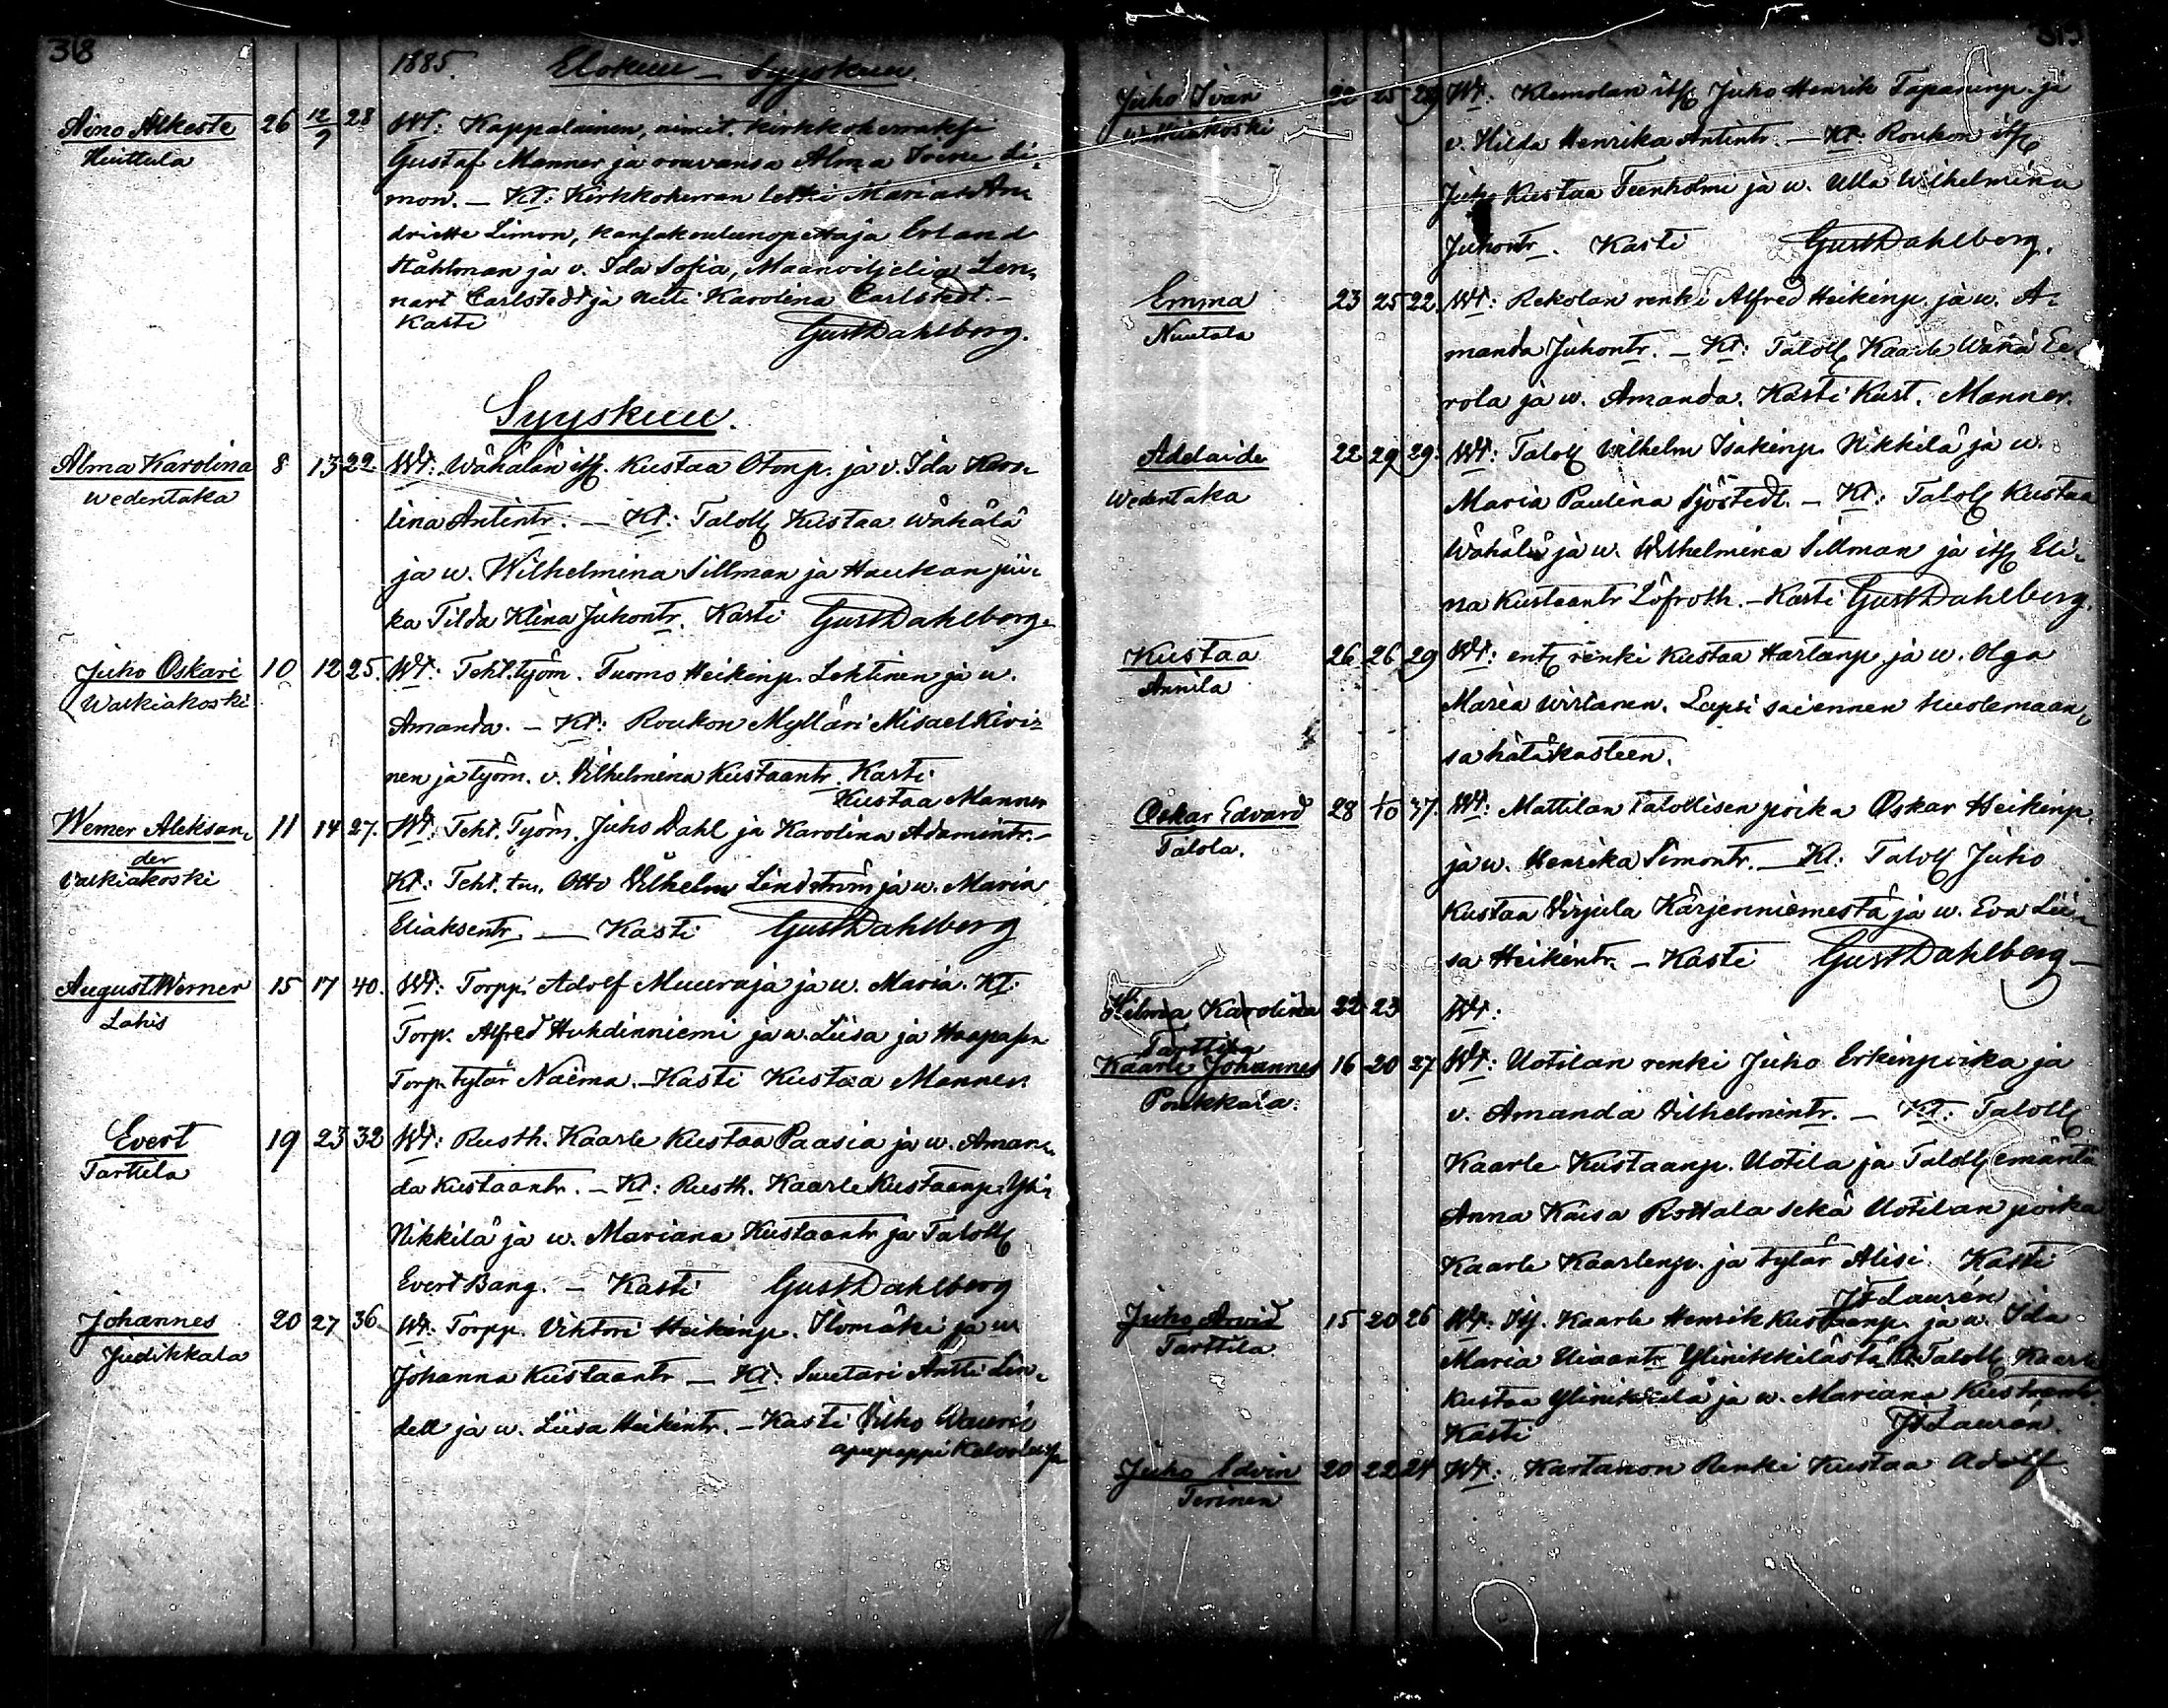 318
1885. Elokuu – Syyskuu.
Aino Alkeste 26 12/9 28 Wt: Kappalainen, nimit. kirkkoherraksi
Huittula Gustaf Manner ja rouvansa Alma Irene Li-
mon. – Kt: Kirkkoherran leski Maria
driette Limon, kansakoulunopettaja Erland
Ståhlman ja v. Ida Sofia, Maanviljeliä Len-
nart Carlstedt ja neiti Karolina Carlstedt. –
Kasti Gust Dahlberg.
Syyskuu.
Alma Karolina 8 13 22 Wt: Wähälän its. Kustaa Otonp. ja v. Ida Karo-
Wedentaka lina Antintr. – Kt: Taloll Kustaa Wähälä
ja w. Wilhelmina Sillman ja Haukan pii-
ka Tilda Klina Juhontr. Kasti Gust Dahlberg.
Juho Oskari 10 12 25. Wt: Teht. työm. Tuomo Heikinp. Lehtinen ja w.
Walkiakoski Amanda. – Kt: Roukon Mylläri Misael Kivi-
nen ja työm. v. Vilhelmina Kustaantr. Kasti
Kustaa Manner
Werner Aleksan- 11 14 27. Wt: Teht. Työm. Juho Dahl ja Karolina Adamintr. –
der
Valkiakoski Kt: Teht. tm. Otto Vilhelm Lindström ja w. Maria
Eliaksentr. – Kasti Gust Dahlberg
August Werner 15 17 40. Wt: Torpp. Adolf Muuraja ja w. Maria. Kt:
Lahis Torp. Alfred Huhdinniemi ja w. Liisa ja
Torp. tytär Naëma. – Kasti Kustaa Manner.
Evert 19 23 32 Wt: Rusth. Kaarle Kustaa Paasia ja w. Aman-
Tarttila da Kustaantr. – Kt: Rusth. Kaarle Kustaanp. Yli-
Nikkilä ja w. Mariana Kustaantr ja Taloll
Evert Bang. – Kasti Gust Dahlberg
Johannes 20 27 36. Wt: Torpp. Viktori Heikinp. Ilomäki ja w
Judikkala Johanna Kustaantr – Kt: Suutari Antti Lin-
dell ja w. Liisa Heikintr. – Kasti Vilho
apupappi
Juho Ivan 22 25 29 Wt: Klemolan its Juho Henrik Tapaninp. ja
v. Hilda Henrika Antintr. – Kt: Roukon its
Juho Kustaa Teenholmi ja w. Ulla Wilhelmina
Juhontr. Kasti Gust Dahlberg.
Emma 23 25 22. Wt: Rekolan renki Alfred Heikinp. ja w. A-
Nuutala manda Juhontr. – Kt: Taloll Kaarle Wähä Ee-
rola ja w. Amanda. Kasti Kust. Manner.
Adelaide 22 29 29. Wt: Taloll Wilhelm Isakinp. Nikkilä ja w.
Wedentaka Maria Paulina Sjöstedt. – Kt: Taloll Kustaa
Wähälä ja w. Wilhelmina Sillman ja its Eli-
na Kustaantr Löfroth. – Kasti Gust Dahlberg.
Kustaa 26 26 29 Wt: ent renki Kustaa ja w. Olga
Annila Maria Wirtanen. Lapsi sai ennen kuolemaan-
sa hätäkasteen.
Oskar Edvard 28 1/10 37. Wt: Mattilan Talollisen poika Oskar Heikinp.
Talola. ja w. Henrika Simontr. – Kt: Taloll Juho
Kustaa Virjula Kärjenniemestä ja w. Eva Lii-
sa Heikintr. – Kasti Gust Dahlberg –
Hilma Karolina 22 23 Wt:
Tarttila
Kaarle Johannes 16 20 27 Wt: Uotilan renki Juho Erkinpoika ja
v. Amanda Vilhelmintr. – Kt: Taloll
Kaarle Kustaanp. Uotila ja Taloll emäntä
Anna Kaisa Rottala sekä Uotilan poika
Kaarle Kaarlenp. ja tytär Alisi. Kasti
Laurén
Juho Arvid 15 20 26 Wt: Kaarle Henrik Kustaanp. ja w. Ida
Tarttila Maria Ylinikkilästä Kt. Taloll Kaarle
Kustaa Ylinikkilä ja w. Mariana Kustaantr.
Kasti Laurén.
Juho Edvin 20 22 24 Wt: Kartanon Renki Kustaa Adolf
Terinen